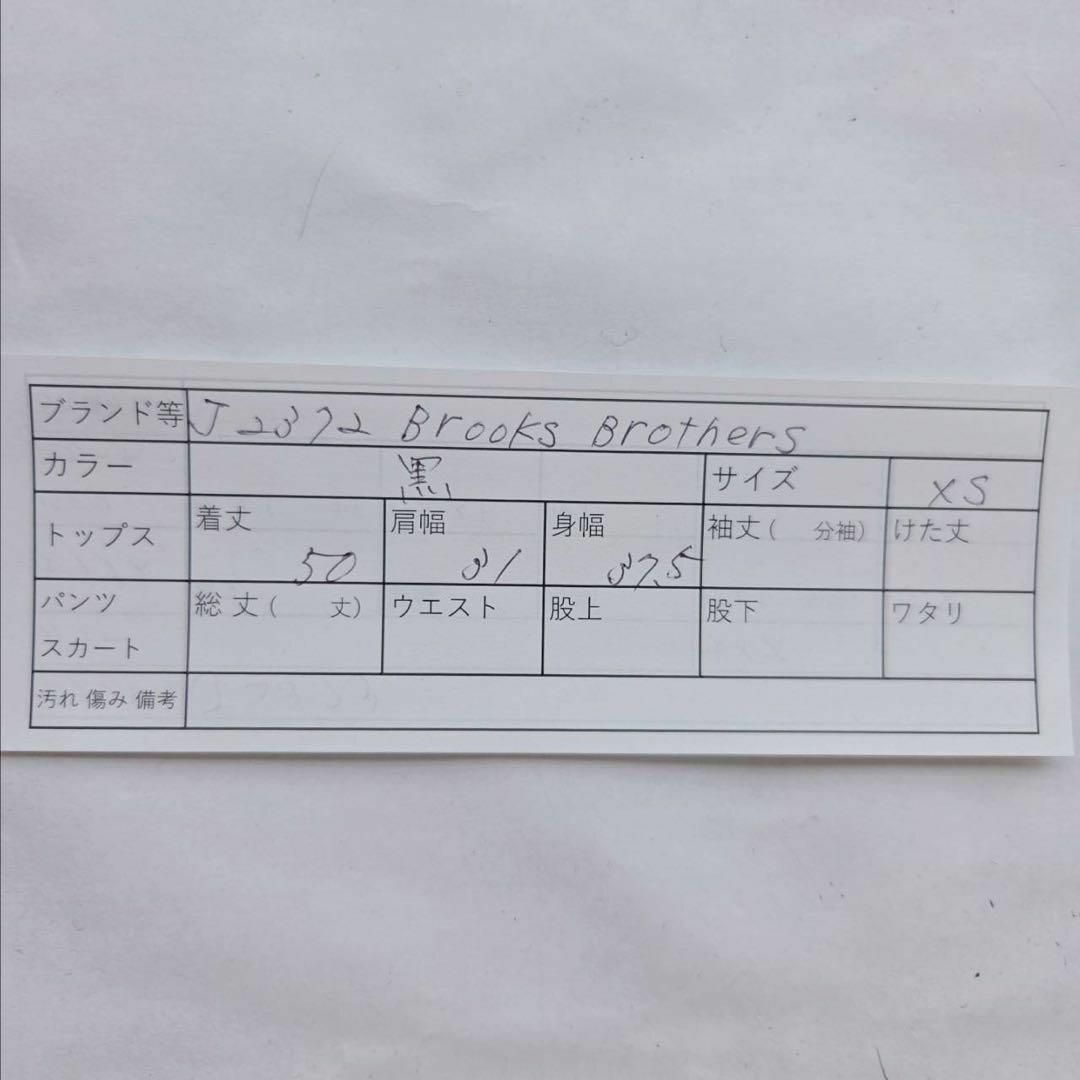 ブランド等 J2372 Brooks Brothers
カラー 黒 サイズ XS
トップス 着丈 50 肩幅 31 身幅 37.5 袖丈( 分袖) けた丈
パンツ スカート 総丈( 丈) ウエスト 股上 股下 ワタリ
汚れ 傷み 備考